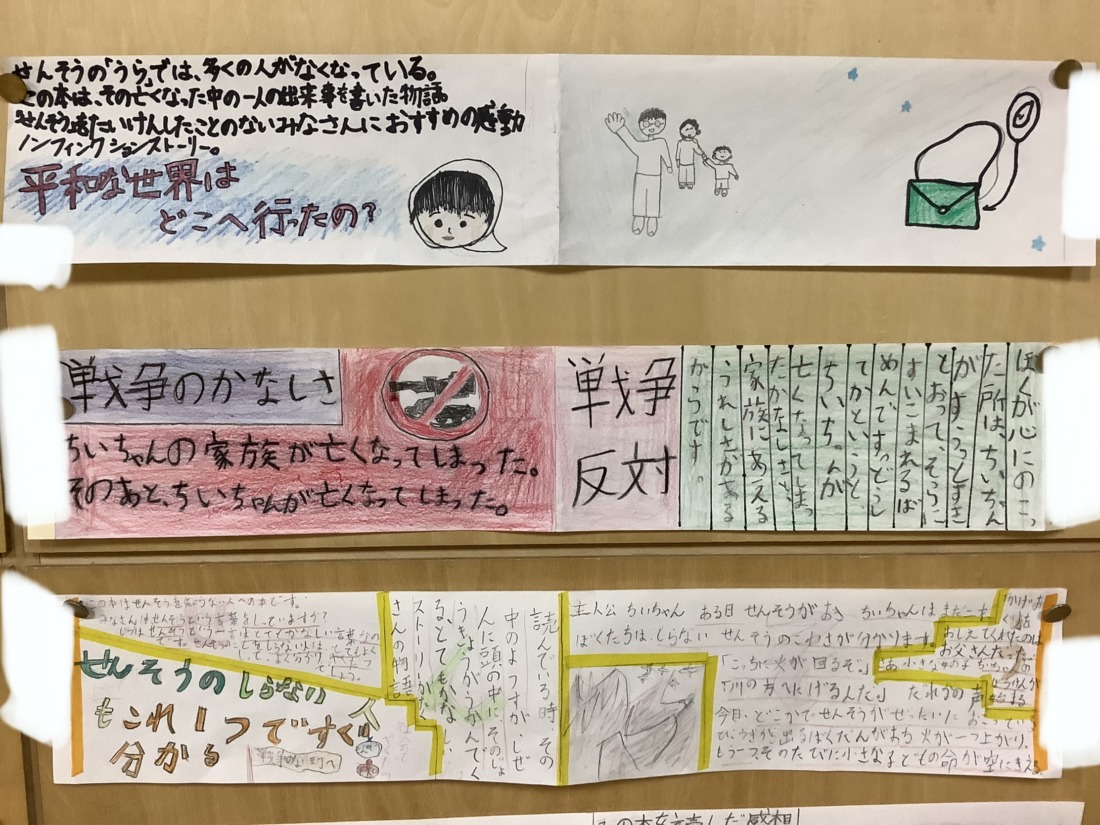 せんそうの「うら」では、多くの人がなくなっている。
この本は、その亡くなった中の一人の出来事を書いた物語。
せんそうをたいけんしたことのないみなさんにおすすめの感動
ノンフィンクションストーリー。
平和な世界は
どこへ行ったの？
戦争のかなしさ
ちいちゃんの家族が亡くなってしまった。
そのあと、ちいちゃんが亡くなってしまった。
戦争
反対
ぼくが心にのこっ
た所は、ちいちゃん
がすうっとすき
とおって、そらに
すいこまれるば
めんですっどうし
てかというと、
ちいちゃんが
亡くなってしまっ
たかなしさと、
家族にあえる
うれしさがある
からです。
この本はせんそうを知らない人への本です。
みなさんはせんそうという言葉をしていますか？
せんそうのしらない人
もこれ1つですぐ
分かる
読んでいる時、その
中のようすが、しぜ
んに頭の中にそのじょ
うきょうがうかんでく
る、とてもかな
ストーリーが
さんの物語
主人公 ちいちゃん ある日 せんそうがおき ちいちゃんは
ぼくたちは、しらない せんそうのこわさが分かります。
「こっちに火が回るぞ。」
「川の方へにげるんだ。」 だれかの声
かげおくり
おしえてくれたのは
お父さんだった
今日、どこかでせんそうがぜったいに おこっている
ひこうきが出るばくだんがおち 火が一つ上がり、
もう一つそのたびに小さな子どもの命が空にきえる
この本を読んだ感想